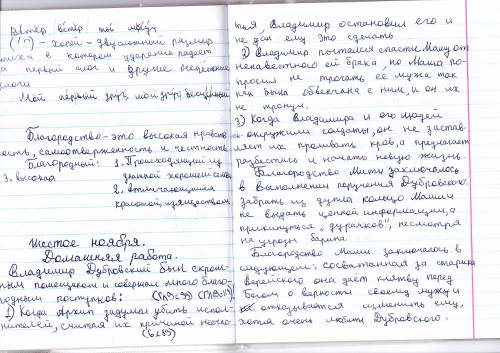 Ветер, ветер ты могуч
(!?) - хорей - двусложный размер
стиха в котором ударение падает
на первый слог и другие нечётные
слоги
Мой первый друг, мой друг бесценный
Благородство - это высокая нравствен
ность, самоотверженность и честность
Благородный: 1. Происходящий из
3. высокая знатной хорошей семьи
2. отличающийся
красотой, изяществом
Шестое ноября.
Домашняя работа.
Владимир Дубровский был скром-
ным помещиком и совершал много благо-
родных поступков:
1) Когда Архип задумал убить испол-
нителей, считая их причиной несчас-
тья, Владимир остановил его и
не дал ему это сделать
2) Владимир пытался спасти Машу от
ненавистного ей брака, но Маша по-
просил не трогать её мужа так
как была обвенчана с ним, и он их
не тронул.
3) Когда Владимира и его людей
окружили солдаты, он не застав-
ляет их проливать кровь, а предлагает
разбестись и начать новую жизнь.
Благородство Мити заключалось
в выполнении поручения Дубровского.
Забрать из дупла кольцо Машин
не выдать ценной информации, а
прикинуться "дурачков", несмотря
на угрозы барина.
Благородство Маши заключалось в
следующем: сосватанная за старика
Верейского она даёт клятву перед
Богом о верности своему мужу и
отказывается изменить ему,
хотя очень любит Дубровского.